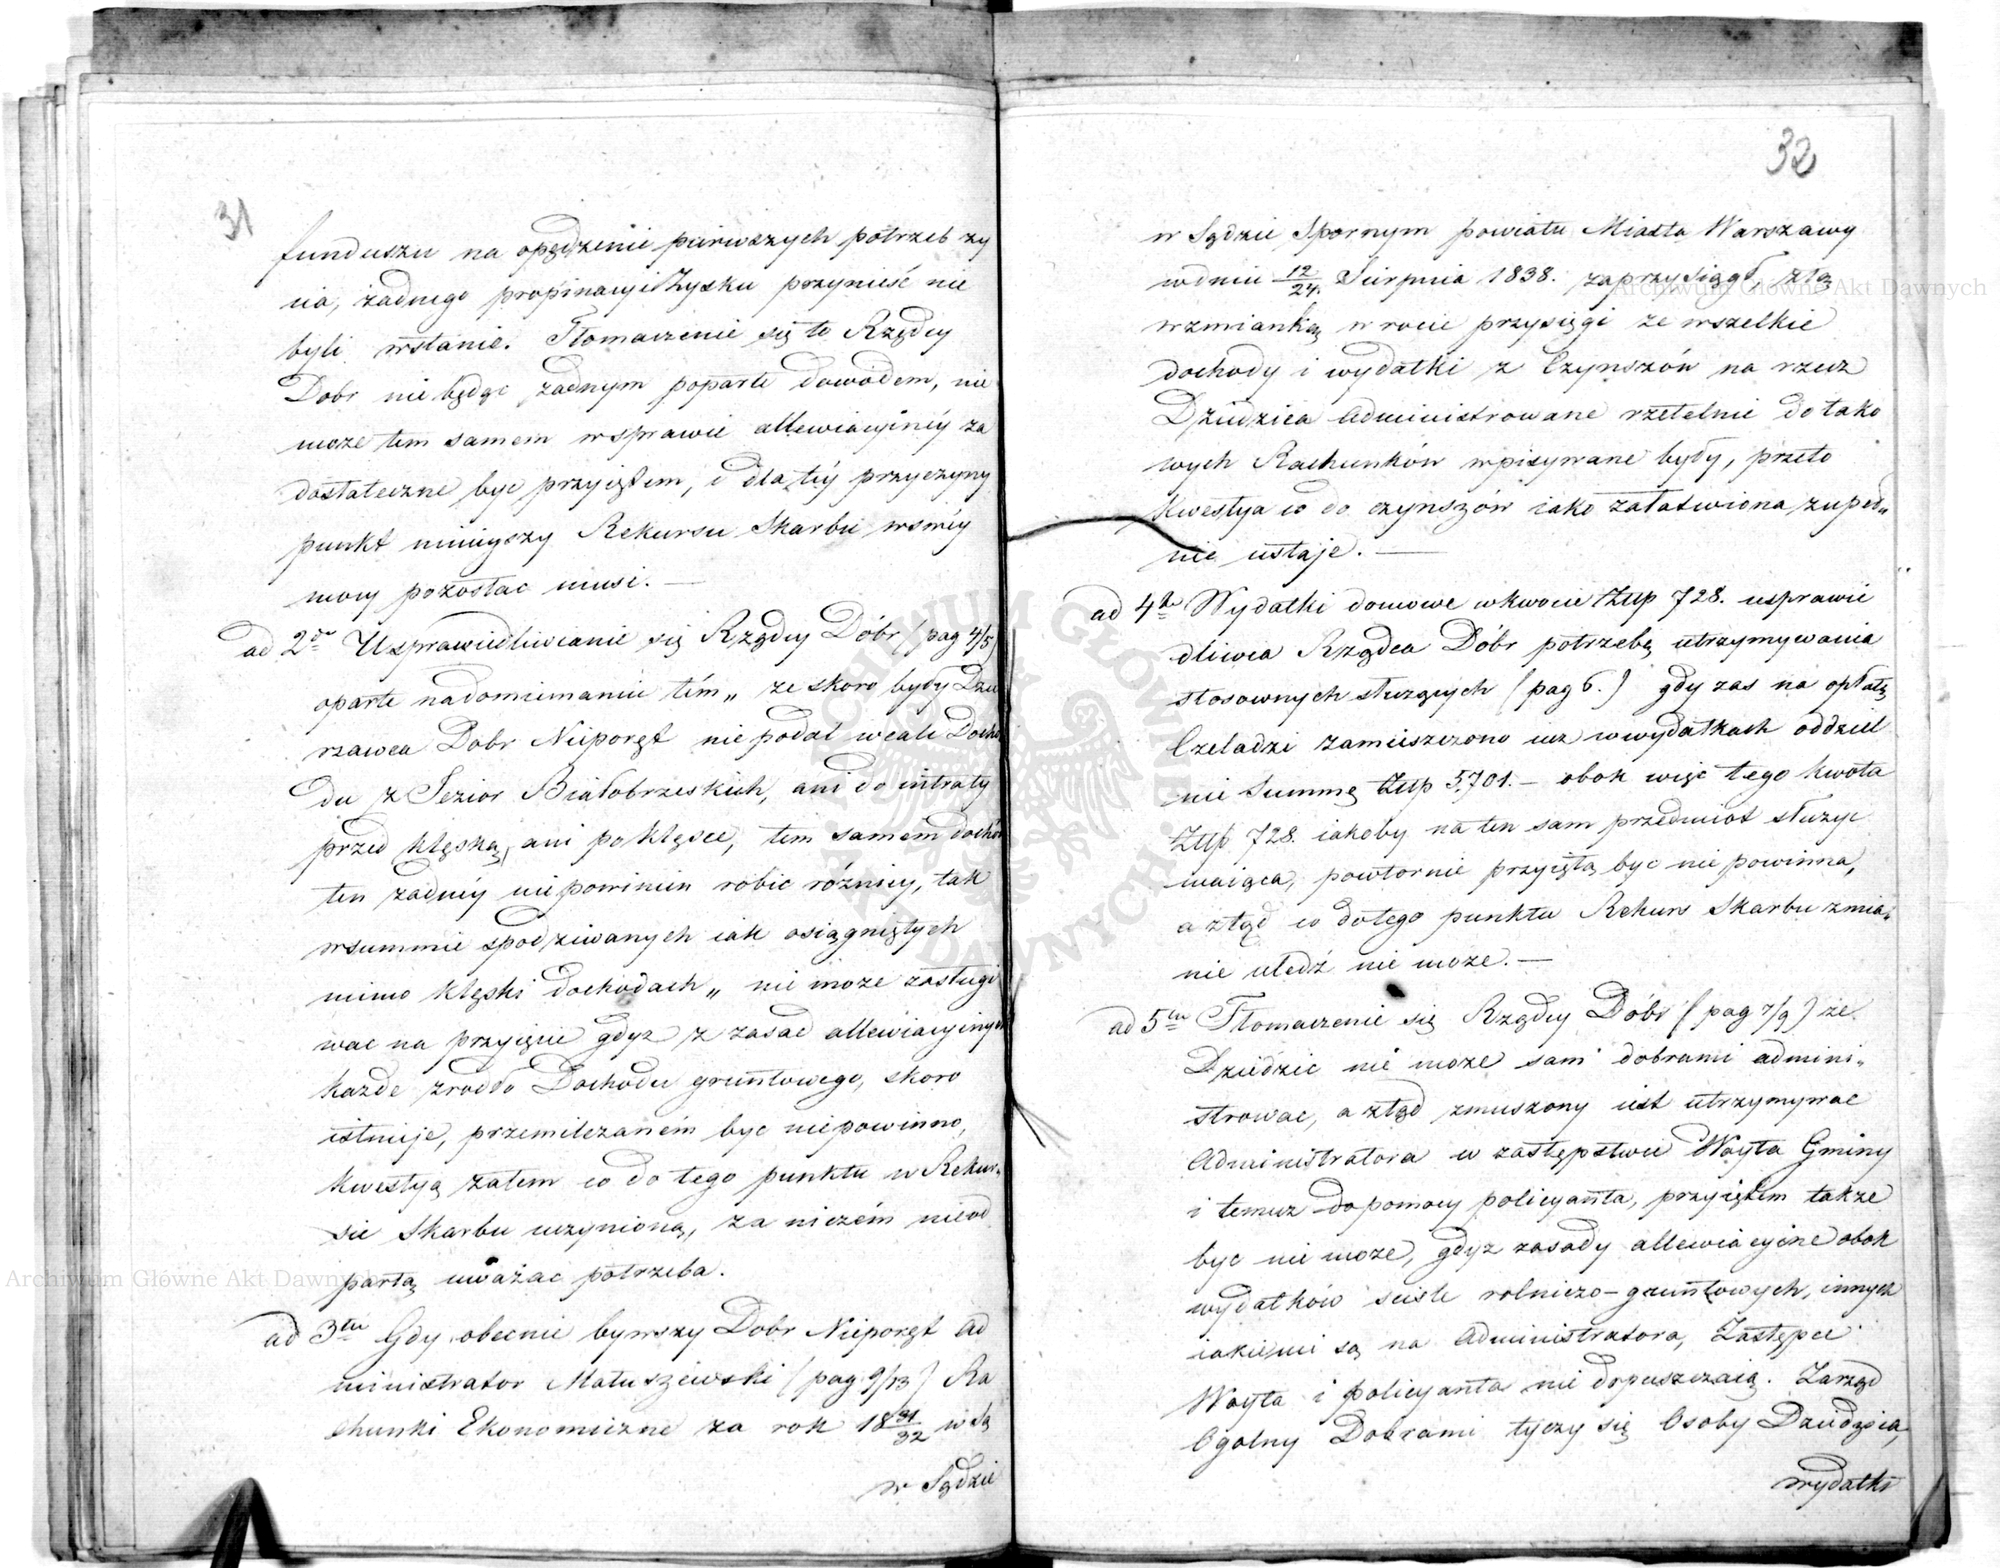 31
funduszu na opędzenie pierwszych potrzeb ży
cia, żadnego propinacyi Zysku przynieść nie
byli wstanie. Tłomaczenie się to Rządcy
Dobr nie będąc żadnym poparte dowodem, nie
może tem samem wsprawie allewiacyinéy za
dostateczne byc przyiętem, i dla téy przyczyny
punkt ninieyszy Rekursu Skarbu wswéy
mocy pozostac musi. —
ad 2do Usprawiedliwianie się Rządcy Dóbr (pag 4/5)
oparte nadomiemaniu tém „ ze skoro były Dzie
rzawca Dobr Nieporęt nie podał wcale Docho
du z Jezior Białobrzeskich, ani do intraty
przed klęską, ani po klęsce, tem samem dochód
ten zadnéy niepowinien robic różnicy, tak
wsummie spodziwanych iak osiągniętych
mimo klęski dochodach „ nie może zasługi
wac na przyięcie gdyż z zasad allewiacyinych
każde zrodło Dochodu gruntowego, skoro
istnieje, przemilczaném byc niepowinno,
kwestyą zatem co do tego punktu w Rekur„
sie Skarbu uczynioną, za niczém nieod
partą uważac potrzeba.
ad 3tio Gdy obecnie bywszy Dobr Nieporęt Ad
ministrator Matuszewski (pag 9/13) Ra
chunki Ekonomiczne za rok 18 31/32 w Są
w Sądzie
32
w Sądzie Spornym powiatu Miasta Warszawy
wdniu 12/24 Sierpnia 1838. zaprzysiągł ztą
wzmianką w rocie przysięgi że wszelkie
dochody i wydatki z Czynszów na rzecz
Dziedzica administrowane rzetelnie do tako
wych Rachunków wpisywane były, przeto
Kwestya co do czynszów iako załatwiona zupeł„
nie ustaje. —
ad 4to Wydatki domowe wkwocie Złlp 728. usprawie
dliwia Rządca Dóbr potrzebą utrzymywania
stosownych służących (pag 6.) gdy zas na opłatę
Czeladzi zamieszczono iuz wwydatkach oddziel
nie Summę Złlp 5,701. – obok więc tego kwota
Złlp 728. iakoby na ten sam przedmiot służyc
maiąca, powtornie przyiętą byc nie powinna,
a ztąd co dotego punktu Rekurs Skarbu zmia„
nie uledź nie moze. —
ad 5to Tłomaczenie się Rządcy Dóbr (pag 7/9) że
Dziedzic nie moze sam dobrami admini„
strowac, a ztąd zmuszony iest utrzymywac
Administratora w zastępstwie Woyta Gminy
i temuz do pomocy policyanta, przyiętem także
byc nie moze, gdyz zasady allewiacyine obok
wydatków scisle rolniczo–gruntowych, innych
iakiemi są na Administratora, Zastępcę
Woyta i policyanta nie dopuszczaią. Zarząd
Ogolny Dobrami tyczy się Osoby Dziedzica,
wydatki
Archiwum Główne Akt Dawnych
Archiwum Główne Akt Dawnych
ARCHIWUM GŁÓWNE AKT DAWNYCH